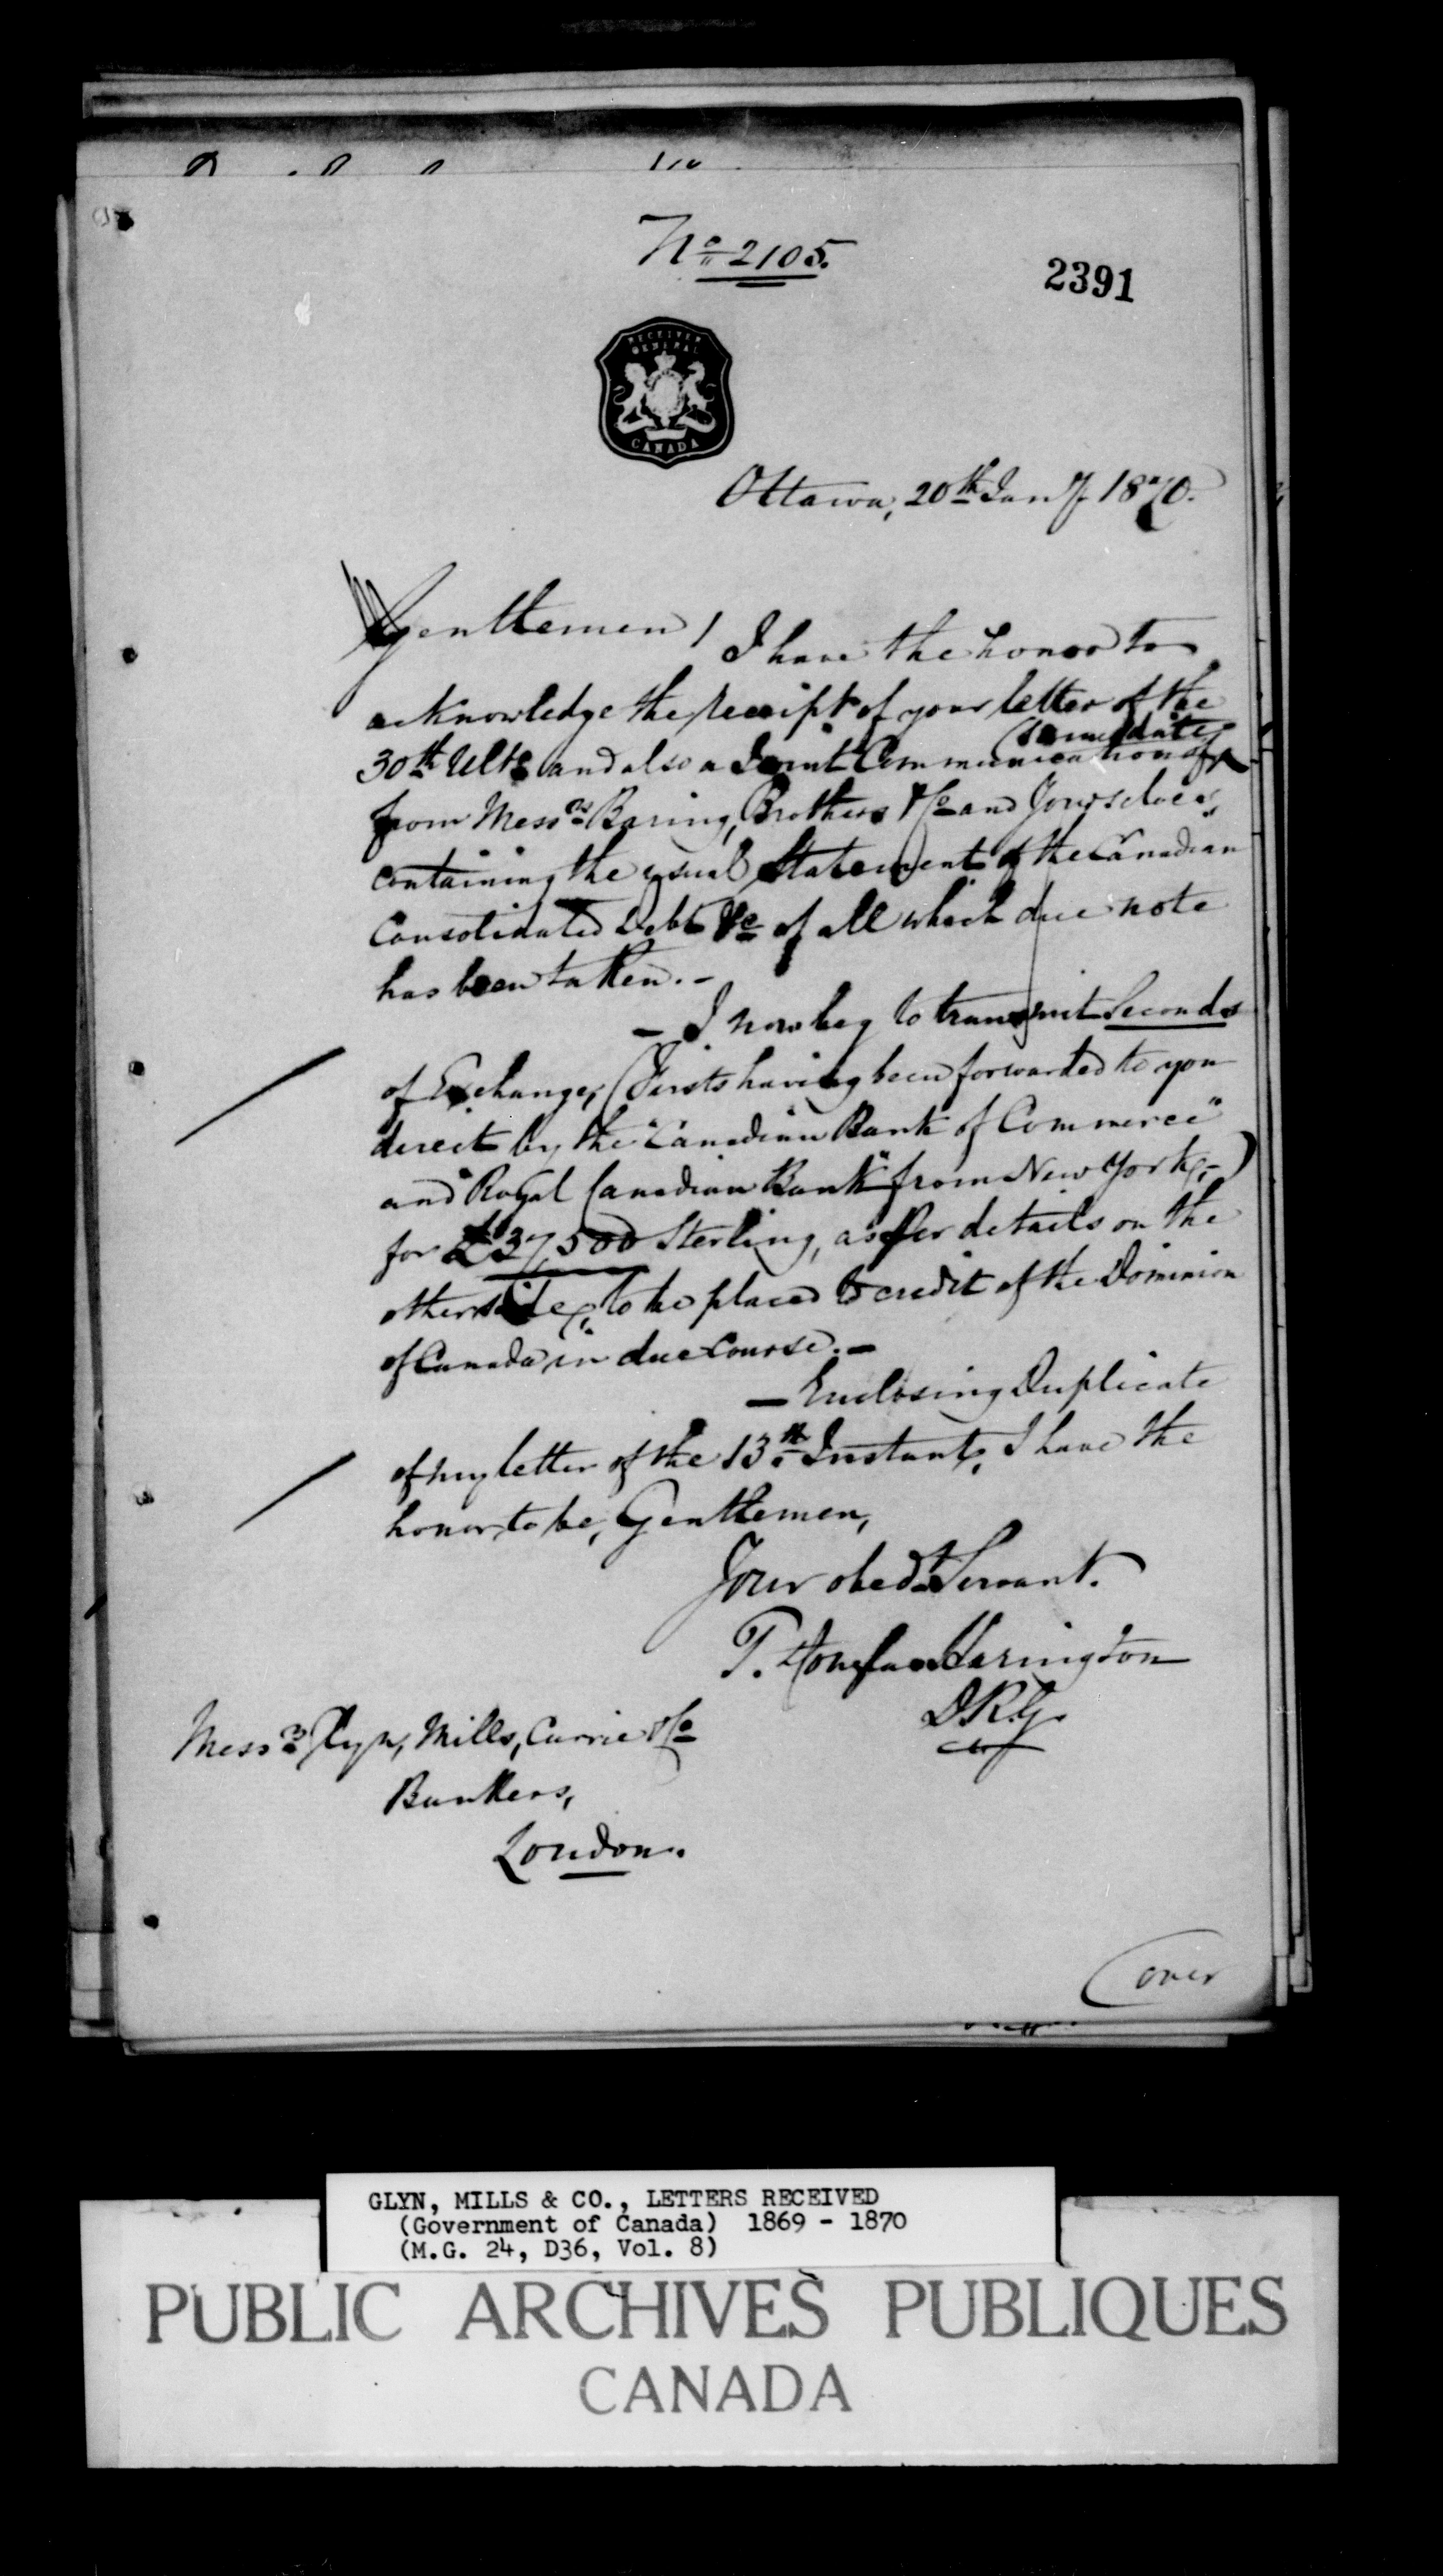 No 2105.
2391
RECEIVER
GENERAL
CANADA
Ottawa, 20th Jany 1870.
Gentlemen,
I have the honor to
acknowledge the receipt of your letter of the
30th Ulto and also a Joint Communication of
(same date)
from Messrs Baring, Brothers & Co and Yourselves,
containing the usual Statement of the Canadian
Consolidated Debt &c of all which due note
has been taken. -
- I now beg to transmit Seconds
of Exchange, (Firsts having been forwarded to you
direct by the "Canadian Bank of Commerce"
and "Royal Canadian Bank" from New York,-)
for £37,500 Sterling, as per details on the
other side, to be placed to credit of the Dominion
of Canada in due course. -
- Enclosing Duplicate
of my letter of the 13th Instant, I have the
honor to be, Gentlemen,
Your obedt Servant.
T. Douglas Harington
D.R.G.
Messrs Glyn, Mills, Currie & Co
Bankers,
London.
(over
GLYN, MILLS & CO., LETTERS RECEIVED
(Government of Canada) 1869 - 1870
(M.G. 24, D36, Vol. 8)
PUBLIC ARCHIVES PUBLIQUES
CANADA